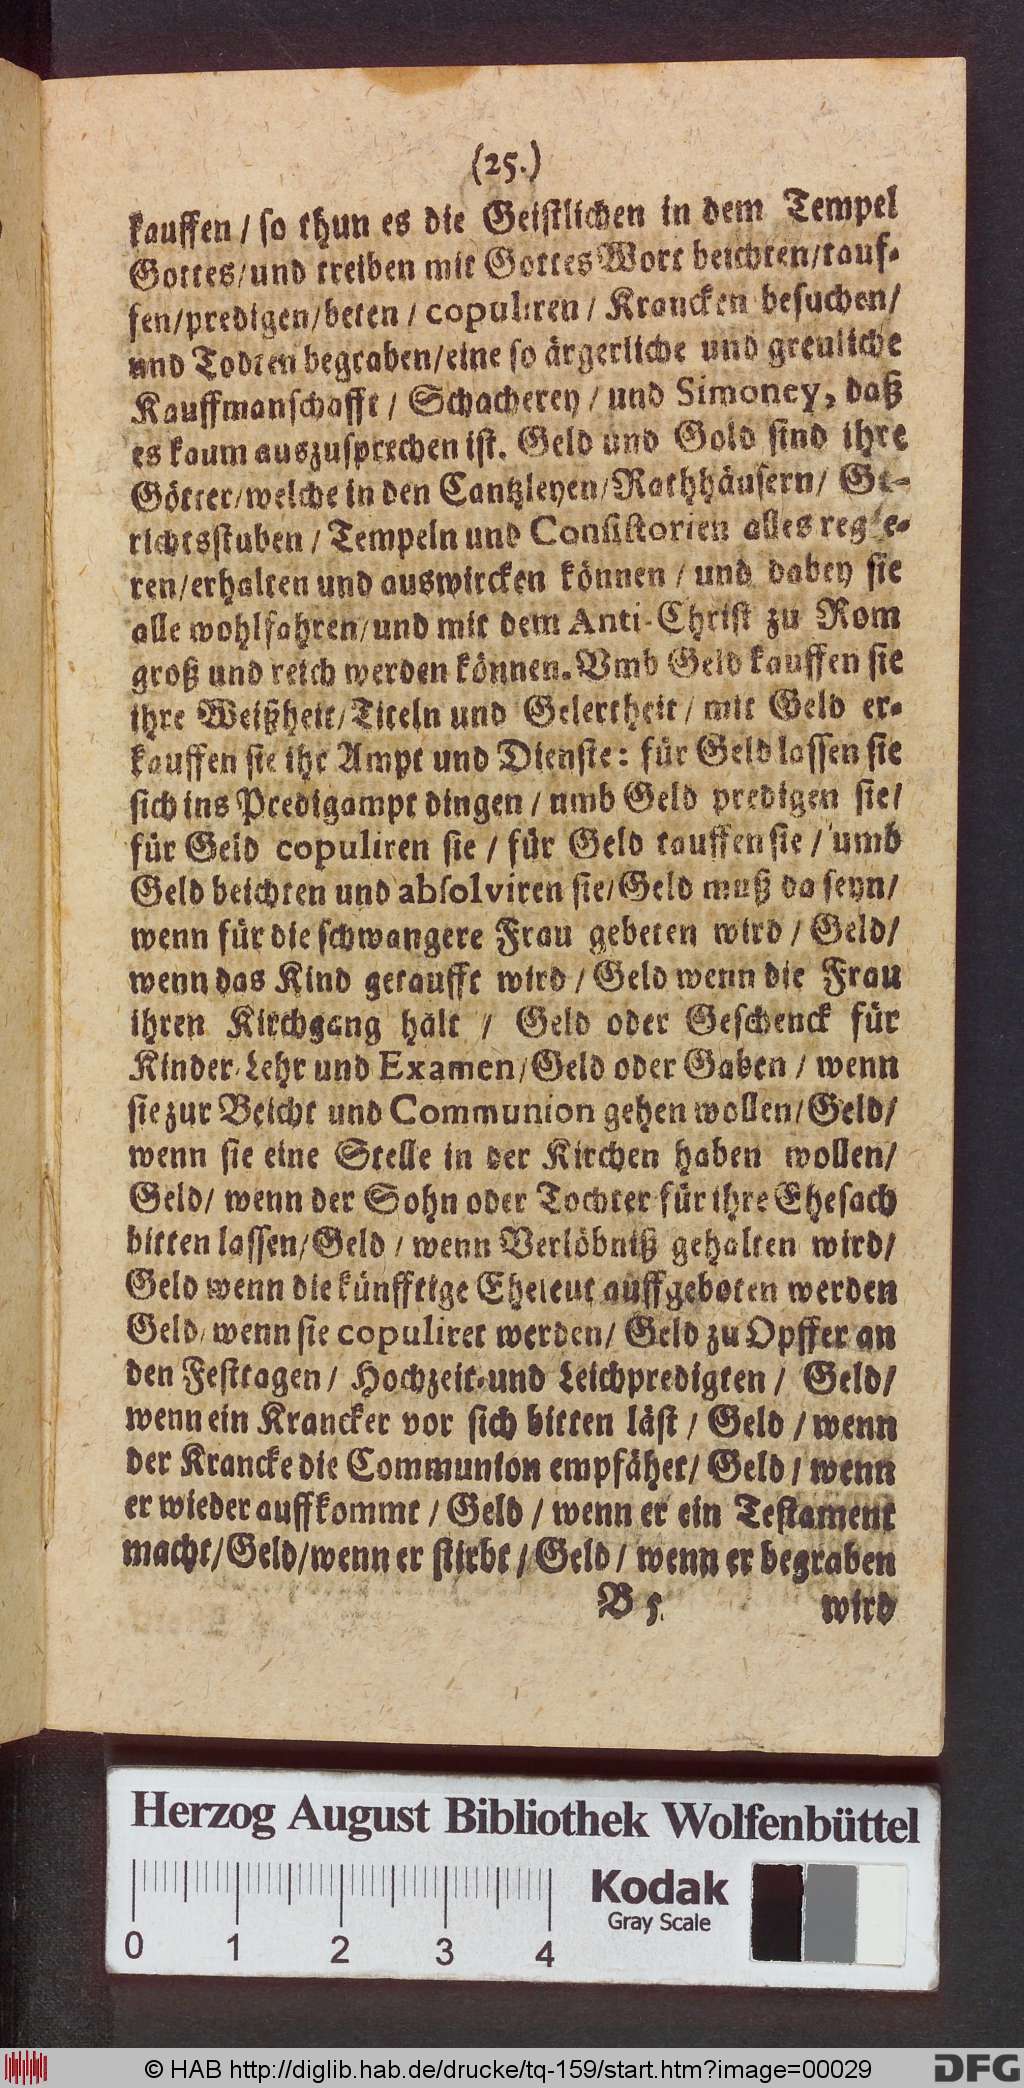 (25.)
kauffen / so thun es die Geistlichen in dem Tempel
Gottes/und treiben mit Gottes Wort beichten/tauf-
fen/predigen/beten / copuliren / Krancken besuchen/
und Todten begraben/eine so ärgerliche und greuliche
Kauffmanschafft / Schacherey / und Simoney, daß
es kaum auszusprechen ist. Geld und Gold sind ihre
Götter/welche in den Cantzleyen/Rathhäusern/ Ge-
richtsstuben / Tempeln und Consistorien alles regie-
ren/erhalten und auswircken können / und dabey sie
alle wohlfahren/und mit dem Anti-Christ zu Rom
groß und reich werden können. Vmb Geld kauffen sie
ihre Weißheit/Titeln und Gelertheit / mit Geld er-
kauffen sie ihr Ampt und Dienste: für Geld lassen sie
sich ins Predigampt dingen / umb Geld predigen sie/
für Geld copuliren sie / für Geld tauffen sie / umb
Geld beichten und absolviren sie/Geld muß da seyn/
wenn für die schwangere Frau gebeten wird / Geld/
wenn das Kind getaufft wird / Geld wenn die Frau
ihren Kirchgang hält / Geld oder Geschenck für
Kinder-Lehr und Examen/Geld oder Gaben / wenn
sie zur Beicht und Communion gehen wollen/Geld/
wenn sie eine Stelle in der Kirchen haben wollen/
Geld/ wenn der Sohn oder Tochter für ihre Ehesach
bitten lassen/Geld / wenn Verlöbniß gehalten wird/
Geld wenn die künfftige Eheleut auffgeboten werden
Geld/wenn sie copuliret werden/ Geld zu Opffer an
den Festtagen / Hochzeit-und Leichpredigten / Geld/
wenn ein Krancker vor sich bitten läst / Geld / wenn
der Krancke die Communion empfähet/ Geld / wenn
er wieder auffkommt / Geld / wenn er ein Testament
macht/Geld/wenn er stirbt / Geld / wenn er begraben
B 5. wird
Herzog August Bibliothek Wolfenbüttel
0 1 2 3 4
Kodak
Gray Scale
© HAB http://diglib.hab.de/drucke/tq-159/start.htm?image=00029
DFG